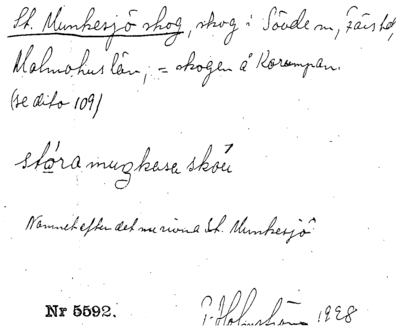 St. Munkesjö skog, skog i Sövde sn, Färs hd,
Malmöhus län, = skogen å Korumpan.
(se dito 109)
stóra muŋkasa skóu
Namnet efter det nu rivna St. Munkesjö
Nr 5592.
P. Holmström 1928